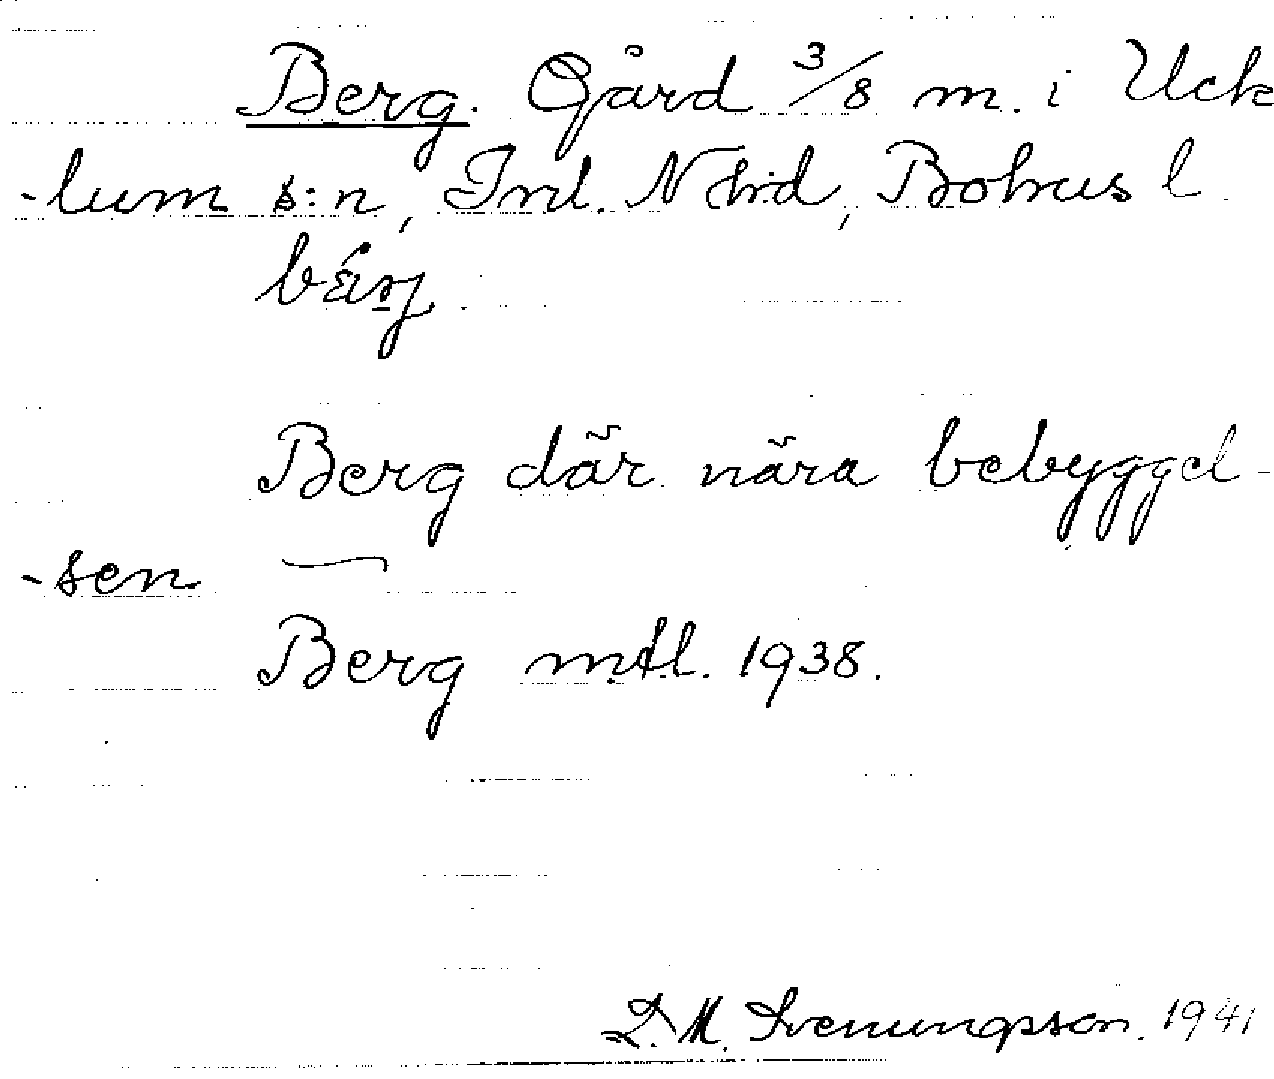 Berg. Gård 3/8 m. i Uck
-lum s:n, Inl. N hrd, Bohus l
Berg där nära bebyggel-
-sen
Berg mtl. 1938.
D. M. Svenungsson. 1941